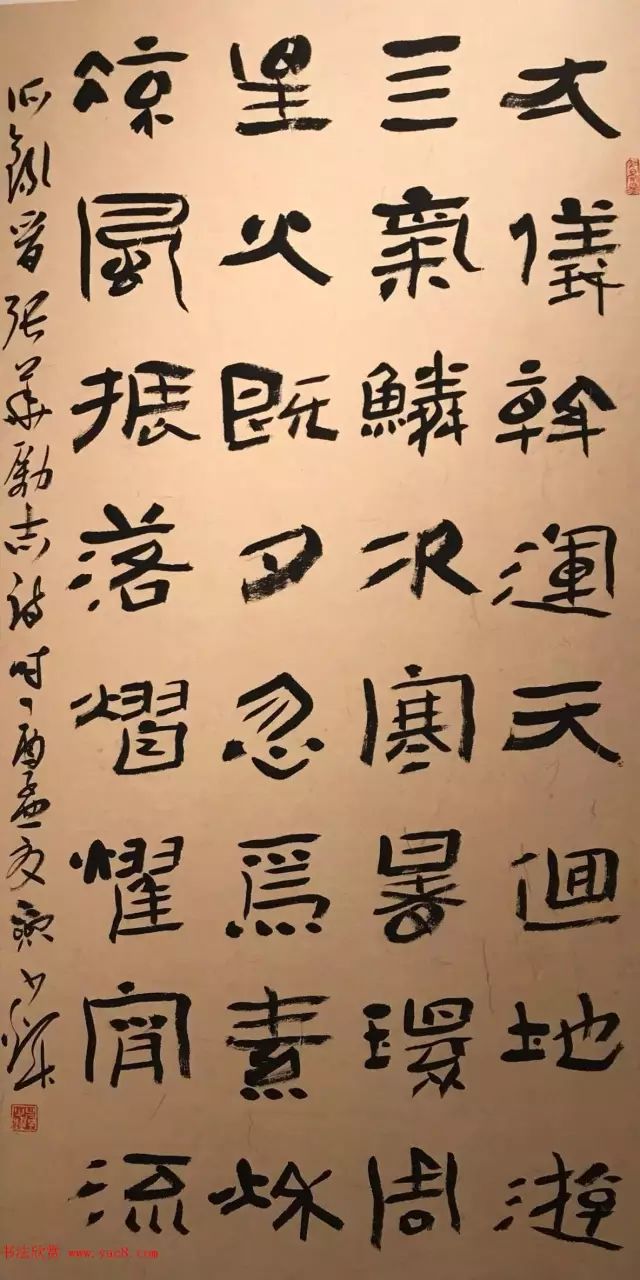 大儀斡運天迴地游
三氣鱗次寒暑環周
星火既夕忽焉素秋
涼風振落熠燿宵流
錄晉張華勵志詩時丁酉孟夏
书法欣赏 www.yuc8.com